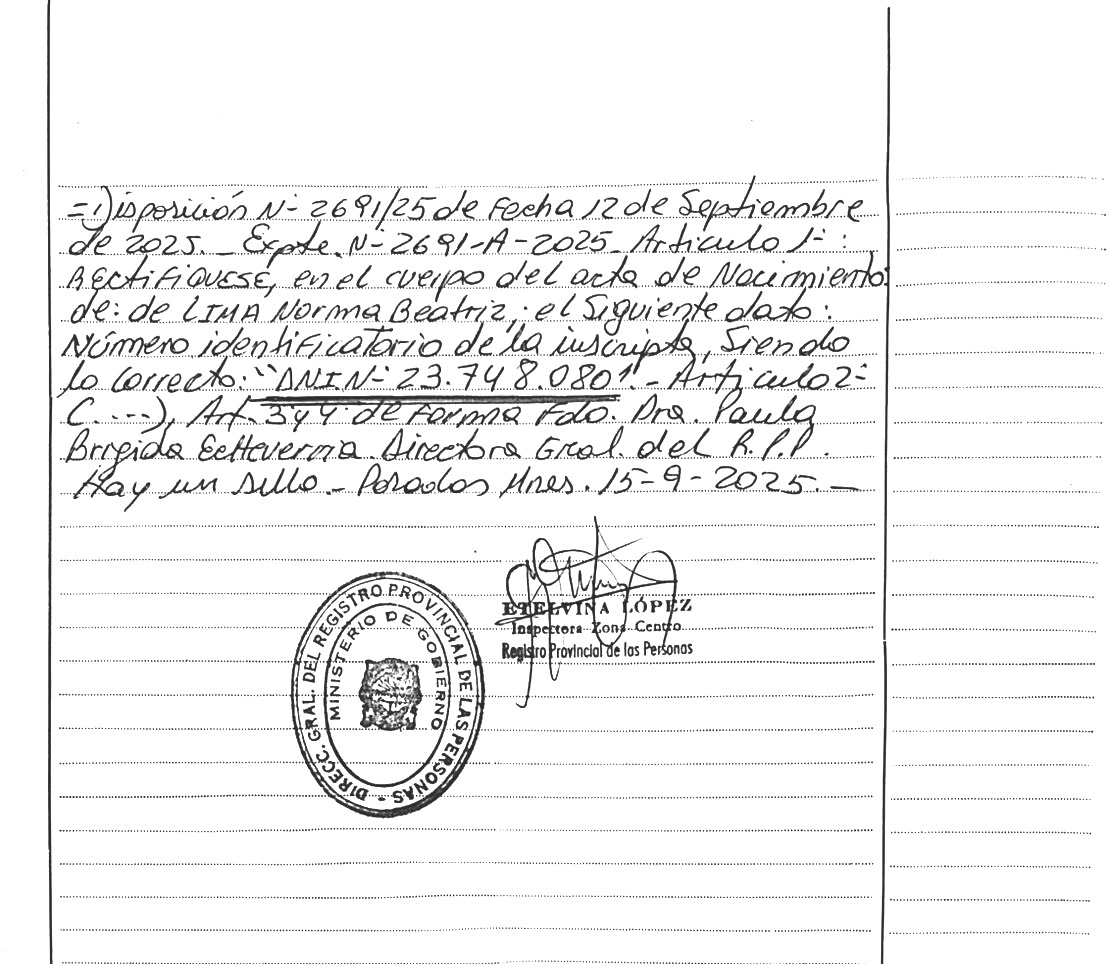 = Disposición N- 2691/25 de Fecha 12 de Septiembre
de 2025. _ Expte. N- 2691-A-2025_ Articulo 1-:
RECTIFIQUESE, en el cuerpo del acta de Nacimiento
de: de LIMA Norma Beatriz, el Siguiente dato:
Número identificatorio de la inscripta, Siendo
lo correcto: "DNI N- 23.748.080". - Articulo 2-
(....), Art. 3 y 4 de Forma Fdo. Dra. Paula
Brigida Echeverria. Directora Gral. del R.P.P.
Hay un sello. - Posadas Mnes. 15-9-2025. _
ETELVINA LÓPEZ
Inspectora Zona Centro
Registro Provincial de las Personas
DIRECC. GRAL. DEL REGISTRO PROVINCIAL DE LAS PERSONAS -
MINISTERIO DE GOBIERNO